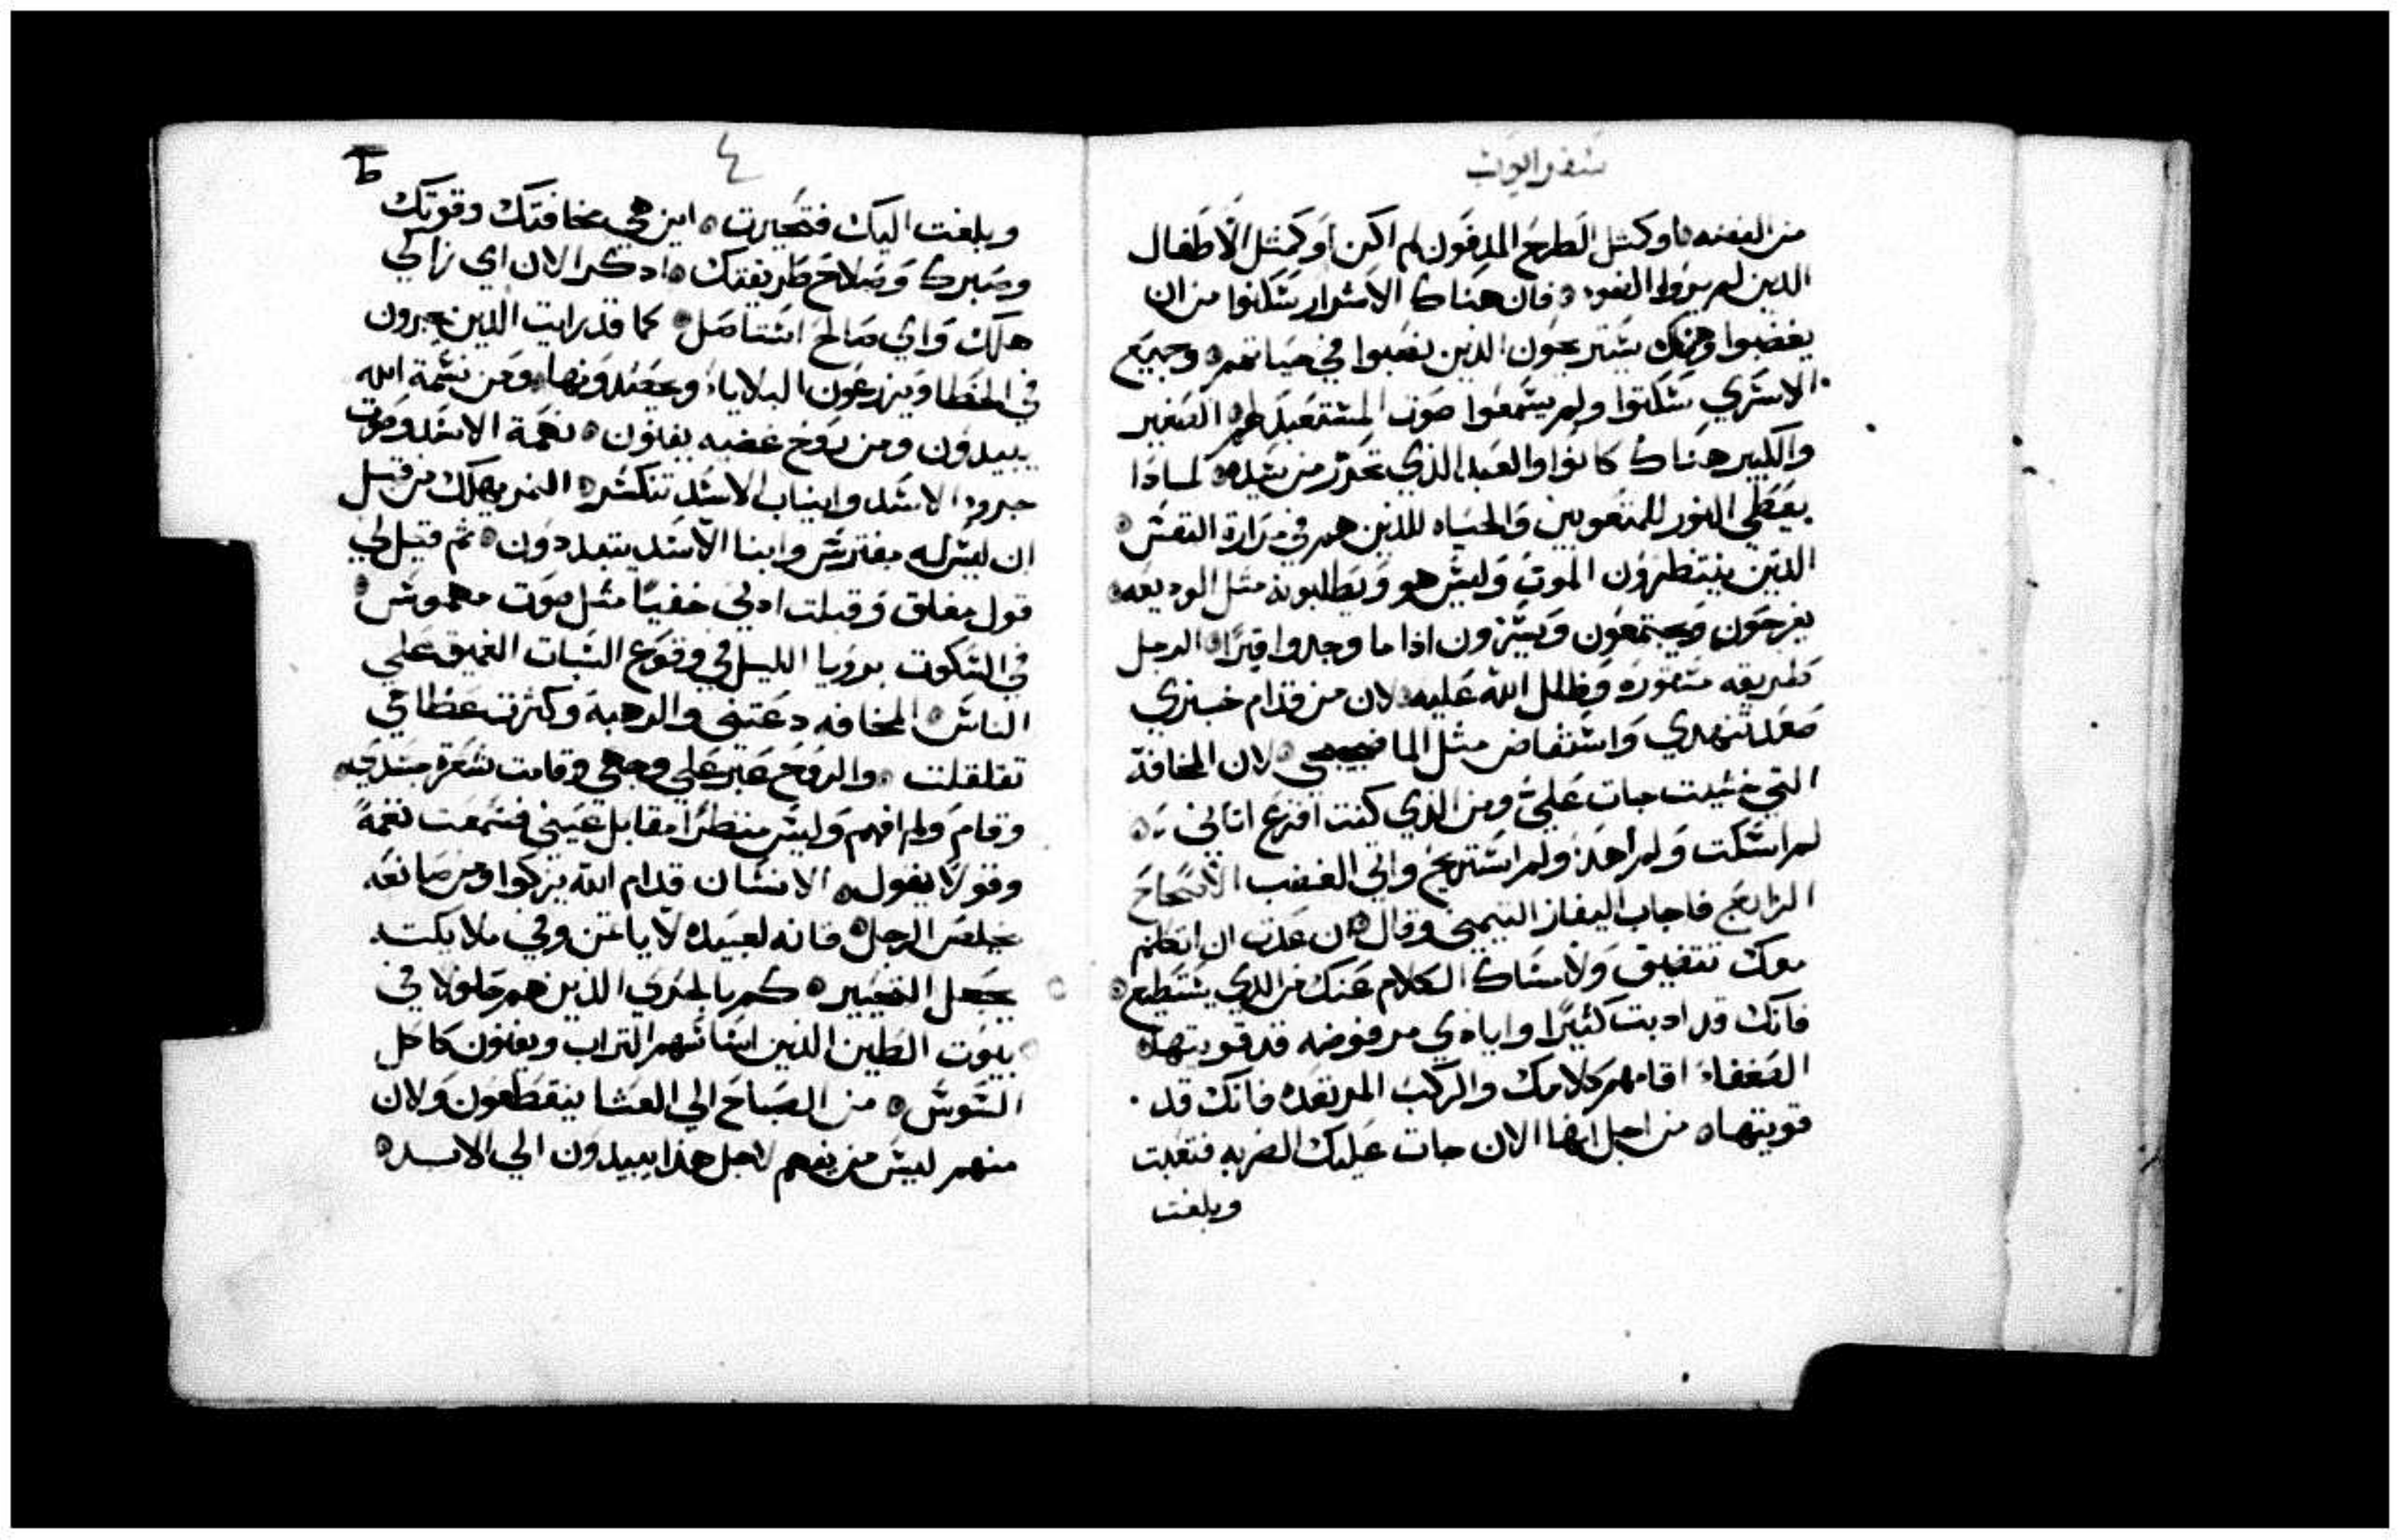 سفر ايوب
من الفضه ٥ او كمثل الطرح المدفون لم اكن او كمثل الاطفال
الدين لم يروا الضوء ٥ فان هناك الاشرار سكنوا من ان
يغضبوا وهناك يستريحون الدين نصبوا في حياتهم ٥ وجميع
الاسري سكتوا ولم يسمعوا صوت المستعبد لهم ٥ الصغير
والكبير هناك كانوا والعبد الذي تحرر من سيده ٥ لمادا
يعطي النور للمتعوبين والحياه للذين هم في مرارة النفس ٥
الدين ينتظرون الموت وليس هو ويطلبونه مثل الوديعه ٥
يفرحون ويجتمعون ويسرون اذا ما وجدوا قبرًا ٥ الرجل
طريقه مستوره وظلل الله عليه ٥ لان من قدام خبزي
صعد تنهدي واستفاض مثل الما ضجيجي ٥ لان المخافة
التي خشيت جات علي ومن الذي كنت افزع اتاني ٥
لم اسكت ولم اهد ولم استريح واتي الغضب الاصحاح
الرابع فاجاب اليفاز التيمني وقال ٥ ان عدت ان اتكلم
معك تتضيق ولامساك الكلام عنك من الدي يستطيع ٥
فانك قد ادبت كثيرًا وايادي مرفوضه قد قويتها ٥
الضعفاء اقامهم كلامك والركب المرتعده فانك قد
قويتها ٥ من اجل انها الان جات عليك الضربه فتعبت
وبلغت
٤
ط
وبلغت اليك فتحيرت ٥ اين هي مخافتك وقوتك
وصبرك وصلاح طريقتك ٥ ادكر الان اي زاكي
هلك واي صالح استاصل ٥ كما قد رايت الذين يجرون
في الخطا ويزرعون البلايا ويحصدونها ٥ ومن نسمة الله
يبيدون ومن روح غضبه يفنون ٥ نغمة الاسد وصوت
جرو الاسد وانياب الاسد تنكسر ٥ النمر يهلك من قبل
ان ليس له مفترس وابنا الاسد يتبددون ٥ ثم قيل لي
قول مغلق وقبلت ادني خفيًا مثل صوت مهموس ٥
في السكوت برويا الليل في وقوع السبات الغميق علي
الناس ٥ المخافه دعتني والرهبة وكثرت عظامي
تقلقلت ٥ والروح عبر علي وجهي وقامت شعرة جسدي ٥
وقام ولم افهم وليس منظرًا مقابل عيني فسمعت نغمةً
وقولًا يقول ٥ الانسان قدام الله يزكوا ومن صانعه
يخلص الرجل ٥ فانه لعبيده لا ياعن وفي ملايكته
يجعل التغيير ٥ كم بالحري الذين هم حلولا في
بيوت الطين الذين اساسهم التراب ويفنون كاكل
السوس ٥ من الصباح الي العشا ينقطعون ولان
منهم ليس من يفهم لاجل هذا يبيدون الي الابد ٥